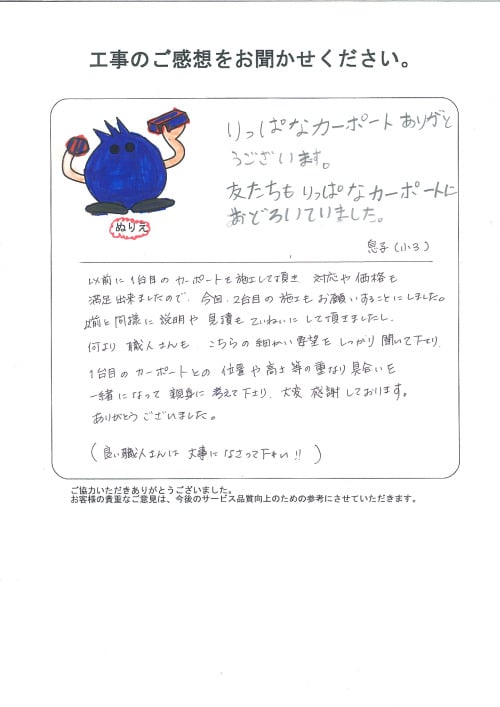 工事のご感想をお聞かせください。
りっぱなカーポートありがと
うございます。
友たちもりっぱなカーポートに
おどろいていました。
ぬりえ
息子(小3)
以前に1台目のカーポートを施工して頂き 対応や価格も
満足出来ましたので、今回、2台目の施工もお願いすることにしました。
以前と同様に説明や見積もていねいにして頂きましたし、
何より職人さんも、こちらの細かい要望をしっかり聞いて下さり、
1台目のカーポートとの位置や高さ等の重なり具合いを
一緒になって親身に考えて下さり、大変感謝しております。
ありがとうございました。
(良い職人さんは大事になさって下さい!!)
ご協力いただきありがとうございました。
お客様の貴重なご意見は、今後のサービス品質向上のための参考にさせていただきます。